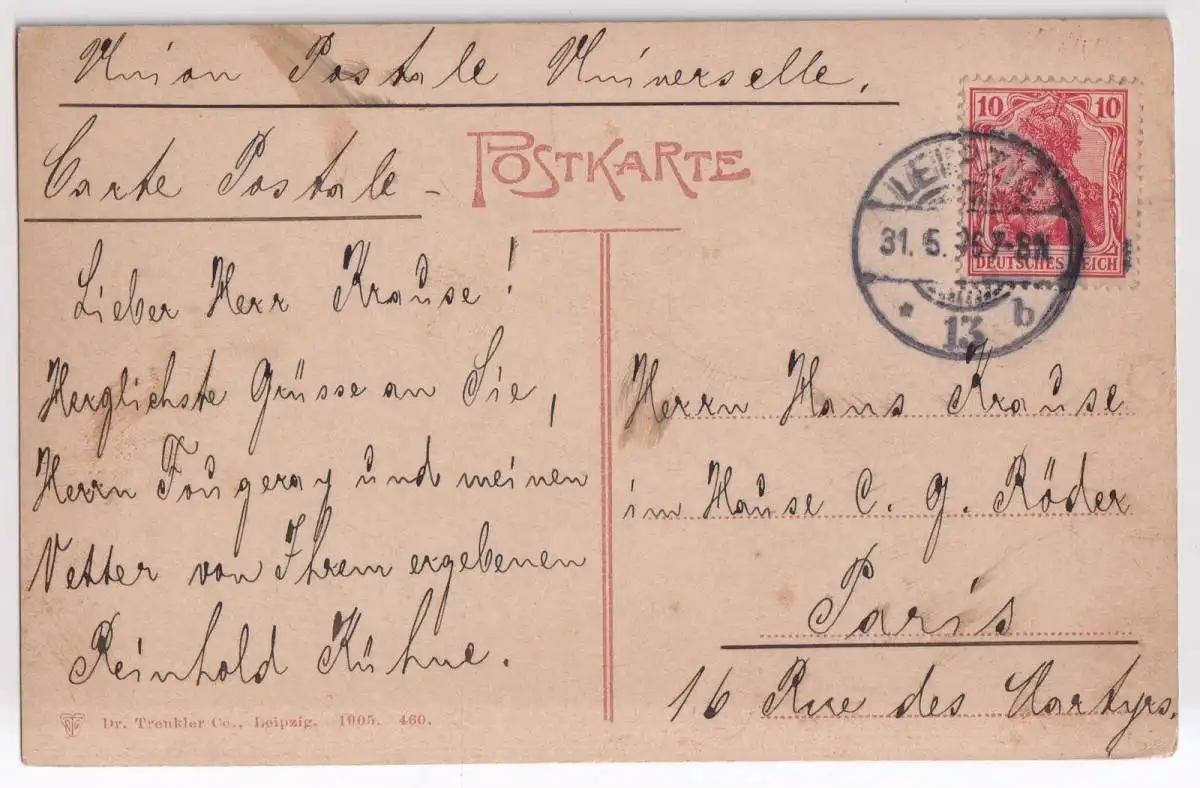 Union Postale Universelle.
Carte Postale –
POSTKARTE
10 10
DEUTSCHES REICH
LEIPZIG
31. 5. 06 7-8N
* 13 b
Lieber Herr Krause!
Herzlichste Grüsse an Sie,
Herrn Fougeray und meinen
Vetter von Ihrem ergebenen
Reinhold Kühne.
Herrn Hans Krause
im Hause C. G. Röder
Paris
16 Rue des Martyrs.
Dr. Trenkler Co., Leipzig. 1905. 460.